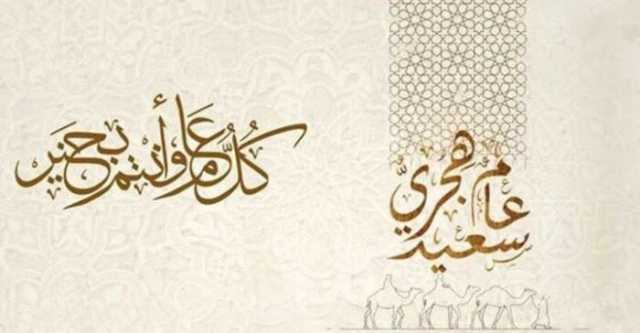 كُلُّ عَام وَأَنتُم بِخَير
عام هجري
سعيد